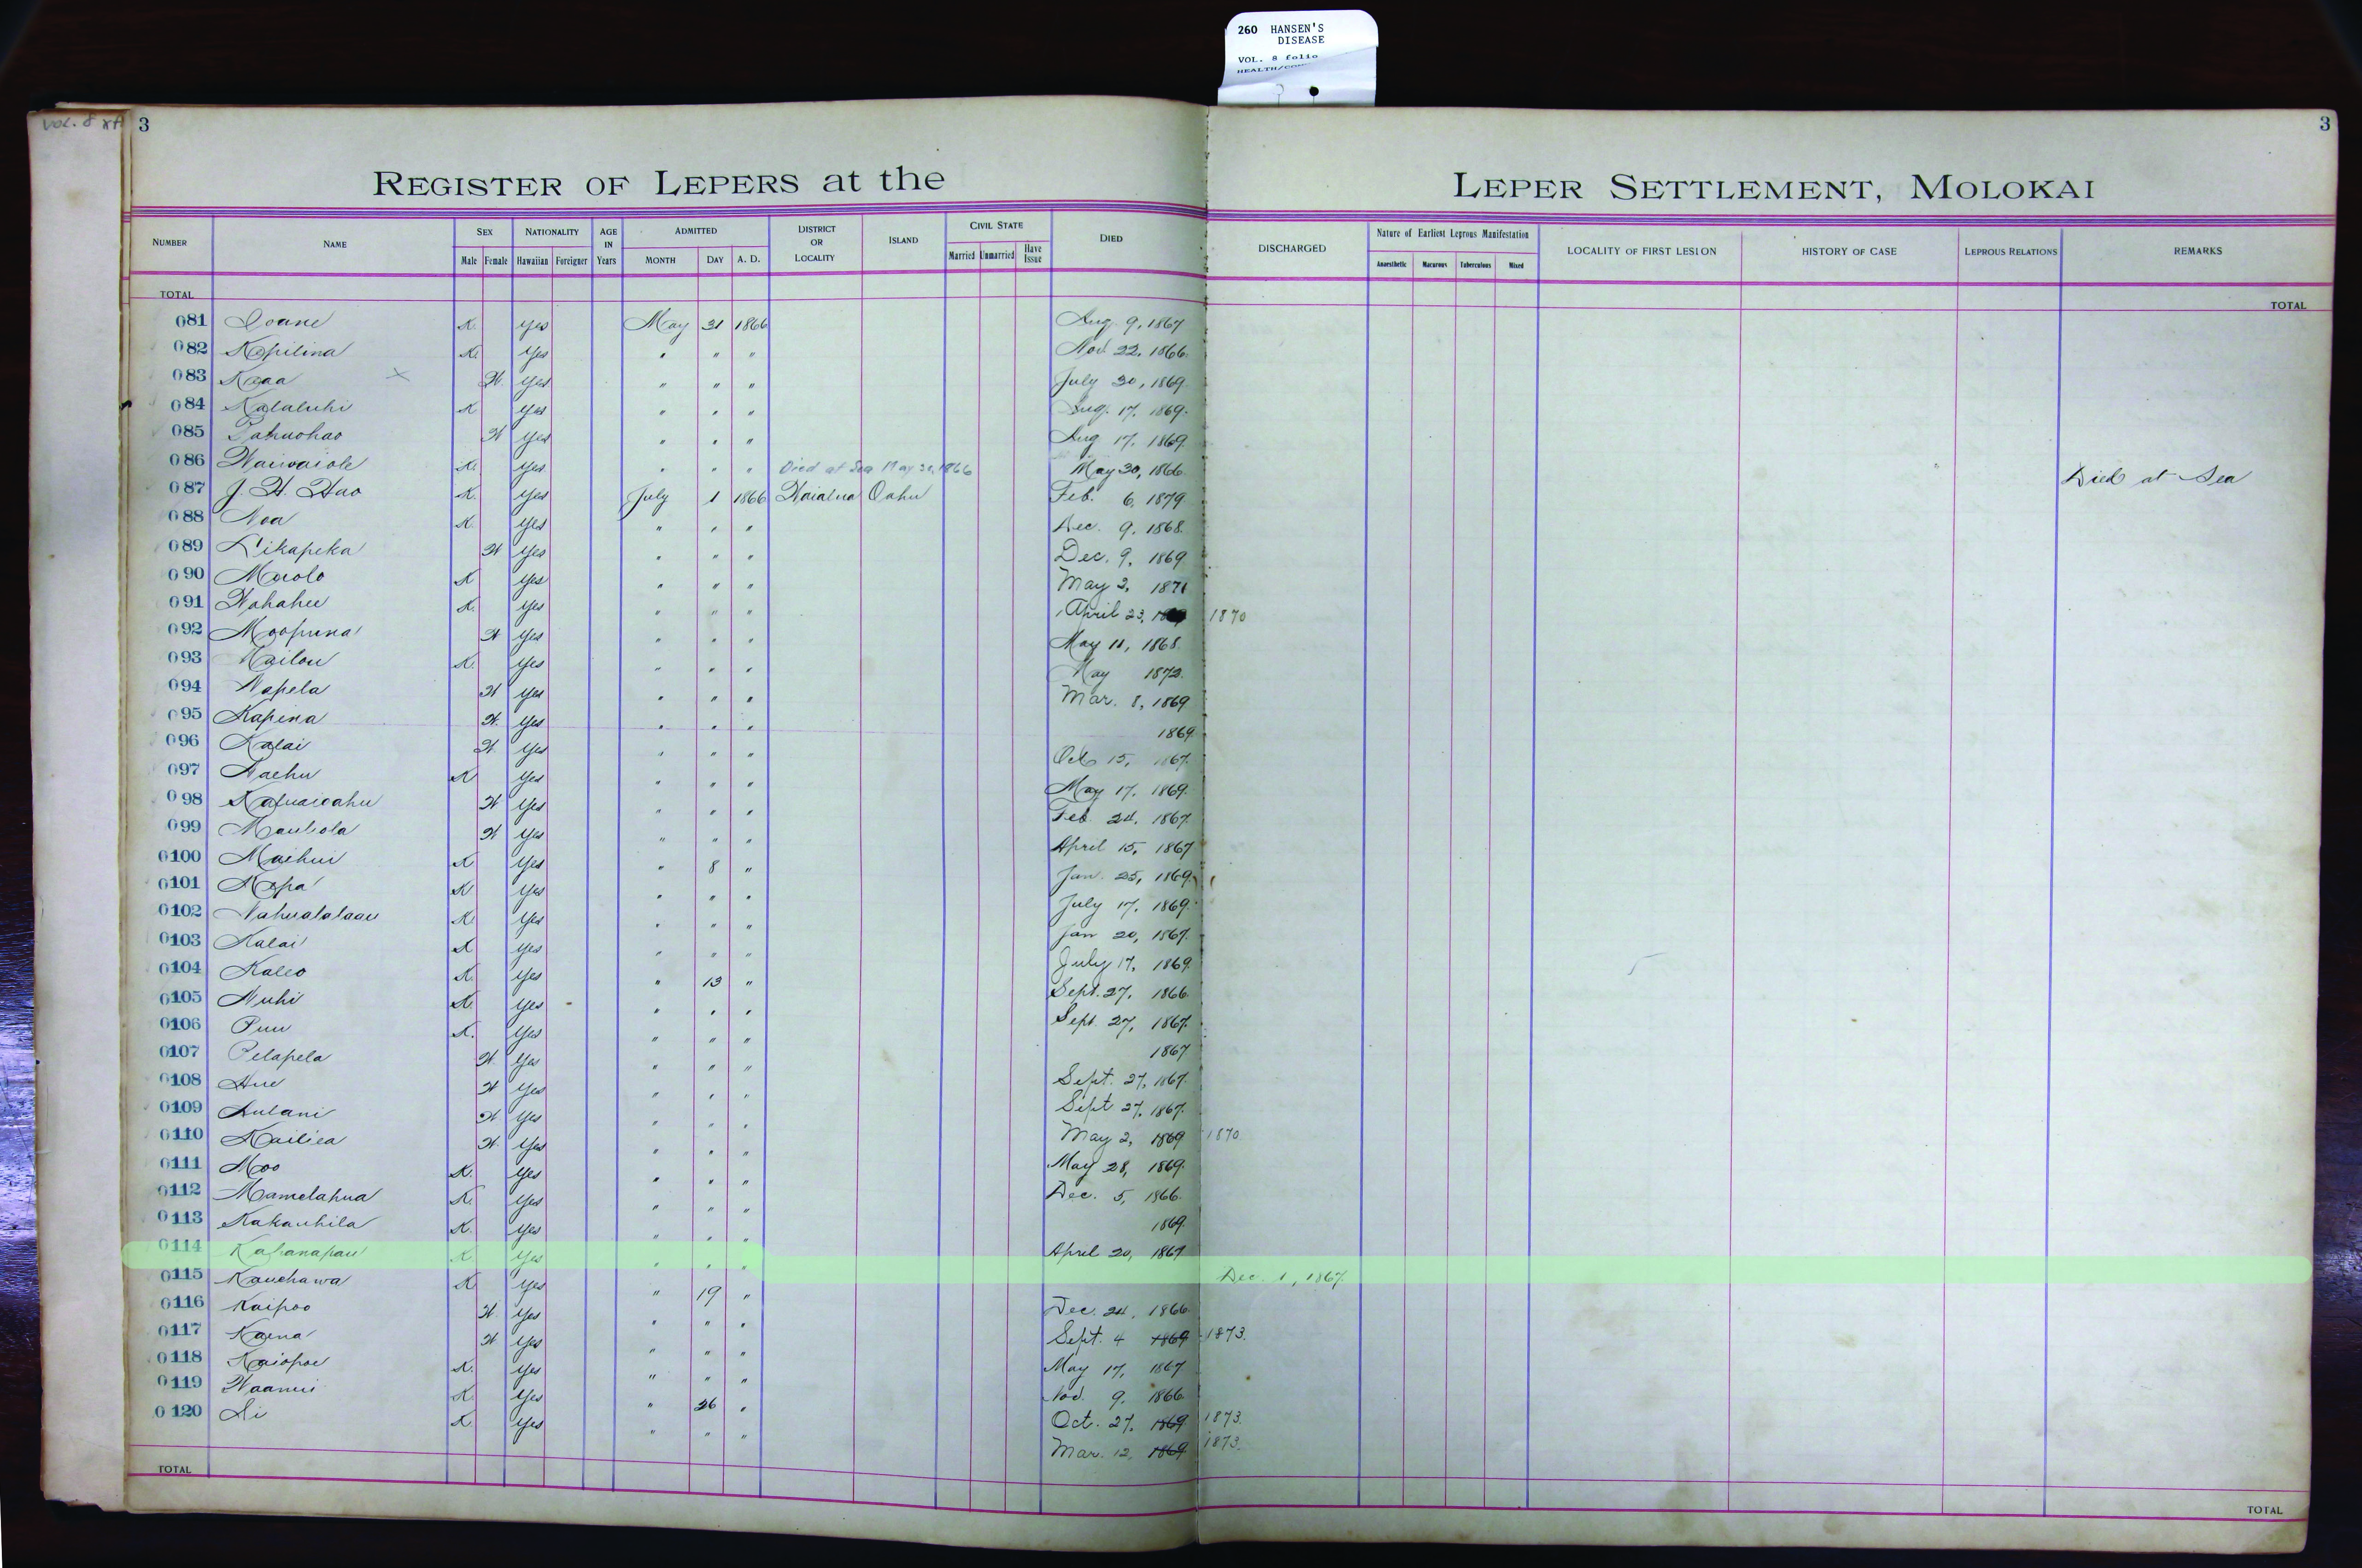 260 HANSEN'S
DISEASE
VOL. 8 folio
VOL. 8
3
3
REGISTER OF LEPERS at the LEPER SETTLEMENT, MOLOKAI
NUMBER NAME SEX NATIONALITY AGE IN Years ADMITTED DISTRICT OR LOCALITY ISLAND CIVIL STATE DIED DISCHARGED Nature of Earliest Leprous Manifestation LOCALITY OF FIRST LESION HISTORY OF CASE LEPROUS RELATIONS REMARKS
Male Female Hawaiian Foreigner MONTH DAY A. D. Married Unmarried Have Issue Anaesthetic Macurous Tuberculous Mixed
TOTAL TOTAL
081 Ioane K. Yes May 31 1866 Aug. 9, 1867
082 Kopilina K. Yes " " " Nov. 22, 1866.
083 Kaaa X W. Yes " " " July 30, 1869.
084 Kalaluhi K Yes " " " Aug. 17, 1869.
085 Pahuohao W Yes " " " Aug 17, 1869.
086 Waiwaiole K. Yes " " " Died at Sea May 30, 1866 May 30, 1866. Died at Sea
087 J. H. Hao K. Yes July 1 1866 Waialua Oahu Feb. 6, 1879
088 Noa K. Yes " " " Dec. 9, 1868.
089 Likapeka W Yes " " " Dec. 9, 1869
090 Maolo K Yes " " " May 2, 1871
091 Wahahee K. Yes " " " April 23, 1870
092 Moopuna W Yes " " " May 11, 1868.
093 Kailou K. Yes " " " May 1872.
094 Napela W Yes " " " Mar. 8, 1869
095 Kapena W. Yes " " " 1869.
096 Kalai W Yes " " " Oct 15, 1867.
097 Naehu K Yes " " " May 17, 1869.
098 W Yes " " " Feb. 24, 1867.
099 Maubola W Yes " " " April 15, 1867
0100 Maihui K Yes " 8 " Jan. 25, 1869.
0101 Mopa K Yes " " " July 17, 1869.
0102 Nahualalaau K. Yes " " " Jan 20, 1867.
0103 Kalai K Yes " " " July 17, 1869.
0104 Kaleo K. Yes " 13 " Sept. 27, 1866.
0105 Nuhi K. Yes " " " Sept. 27, 1867.
0106 Puu K. Yes " " " 1867
0107 Pelapela W Yes " " " Sept. 27, 1867.
0108 Hue W Yes " " " Sept 27, 1867.
0109 Aulani W. Yes " " " May 2, 1869 1870
0110 Kailiea W. Yes " " " May 28, 1869.
0111 Moo K. Yes " " " Dec. 5, 1866.
0112 Mamelahua K. Yes " " " 1869.
0113 Kakauhila K. Yes " " " April 20, 1867
0114 Kapanapau K. Yes " " " Dec. 1, 1867.
0115 Kauehawa K. Yes " 19 " Dec. 24, 1866.
0116 Kaipoo W. Yes " " " Sept. 4 1869 1873.
0117 Kaena W Yes " " " May 17, 1867
0118 Kaiopoe K. Yes " " " Nov. 9, 1866.
0119 Waanui K. Yes " 26 " Oct. 27, 1869 1873.
0120 Ai K. Yes " " " Mar. 12, 1869 1873.
TOTAL TOTAL